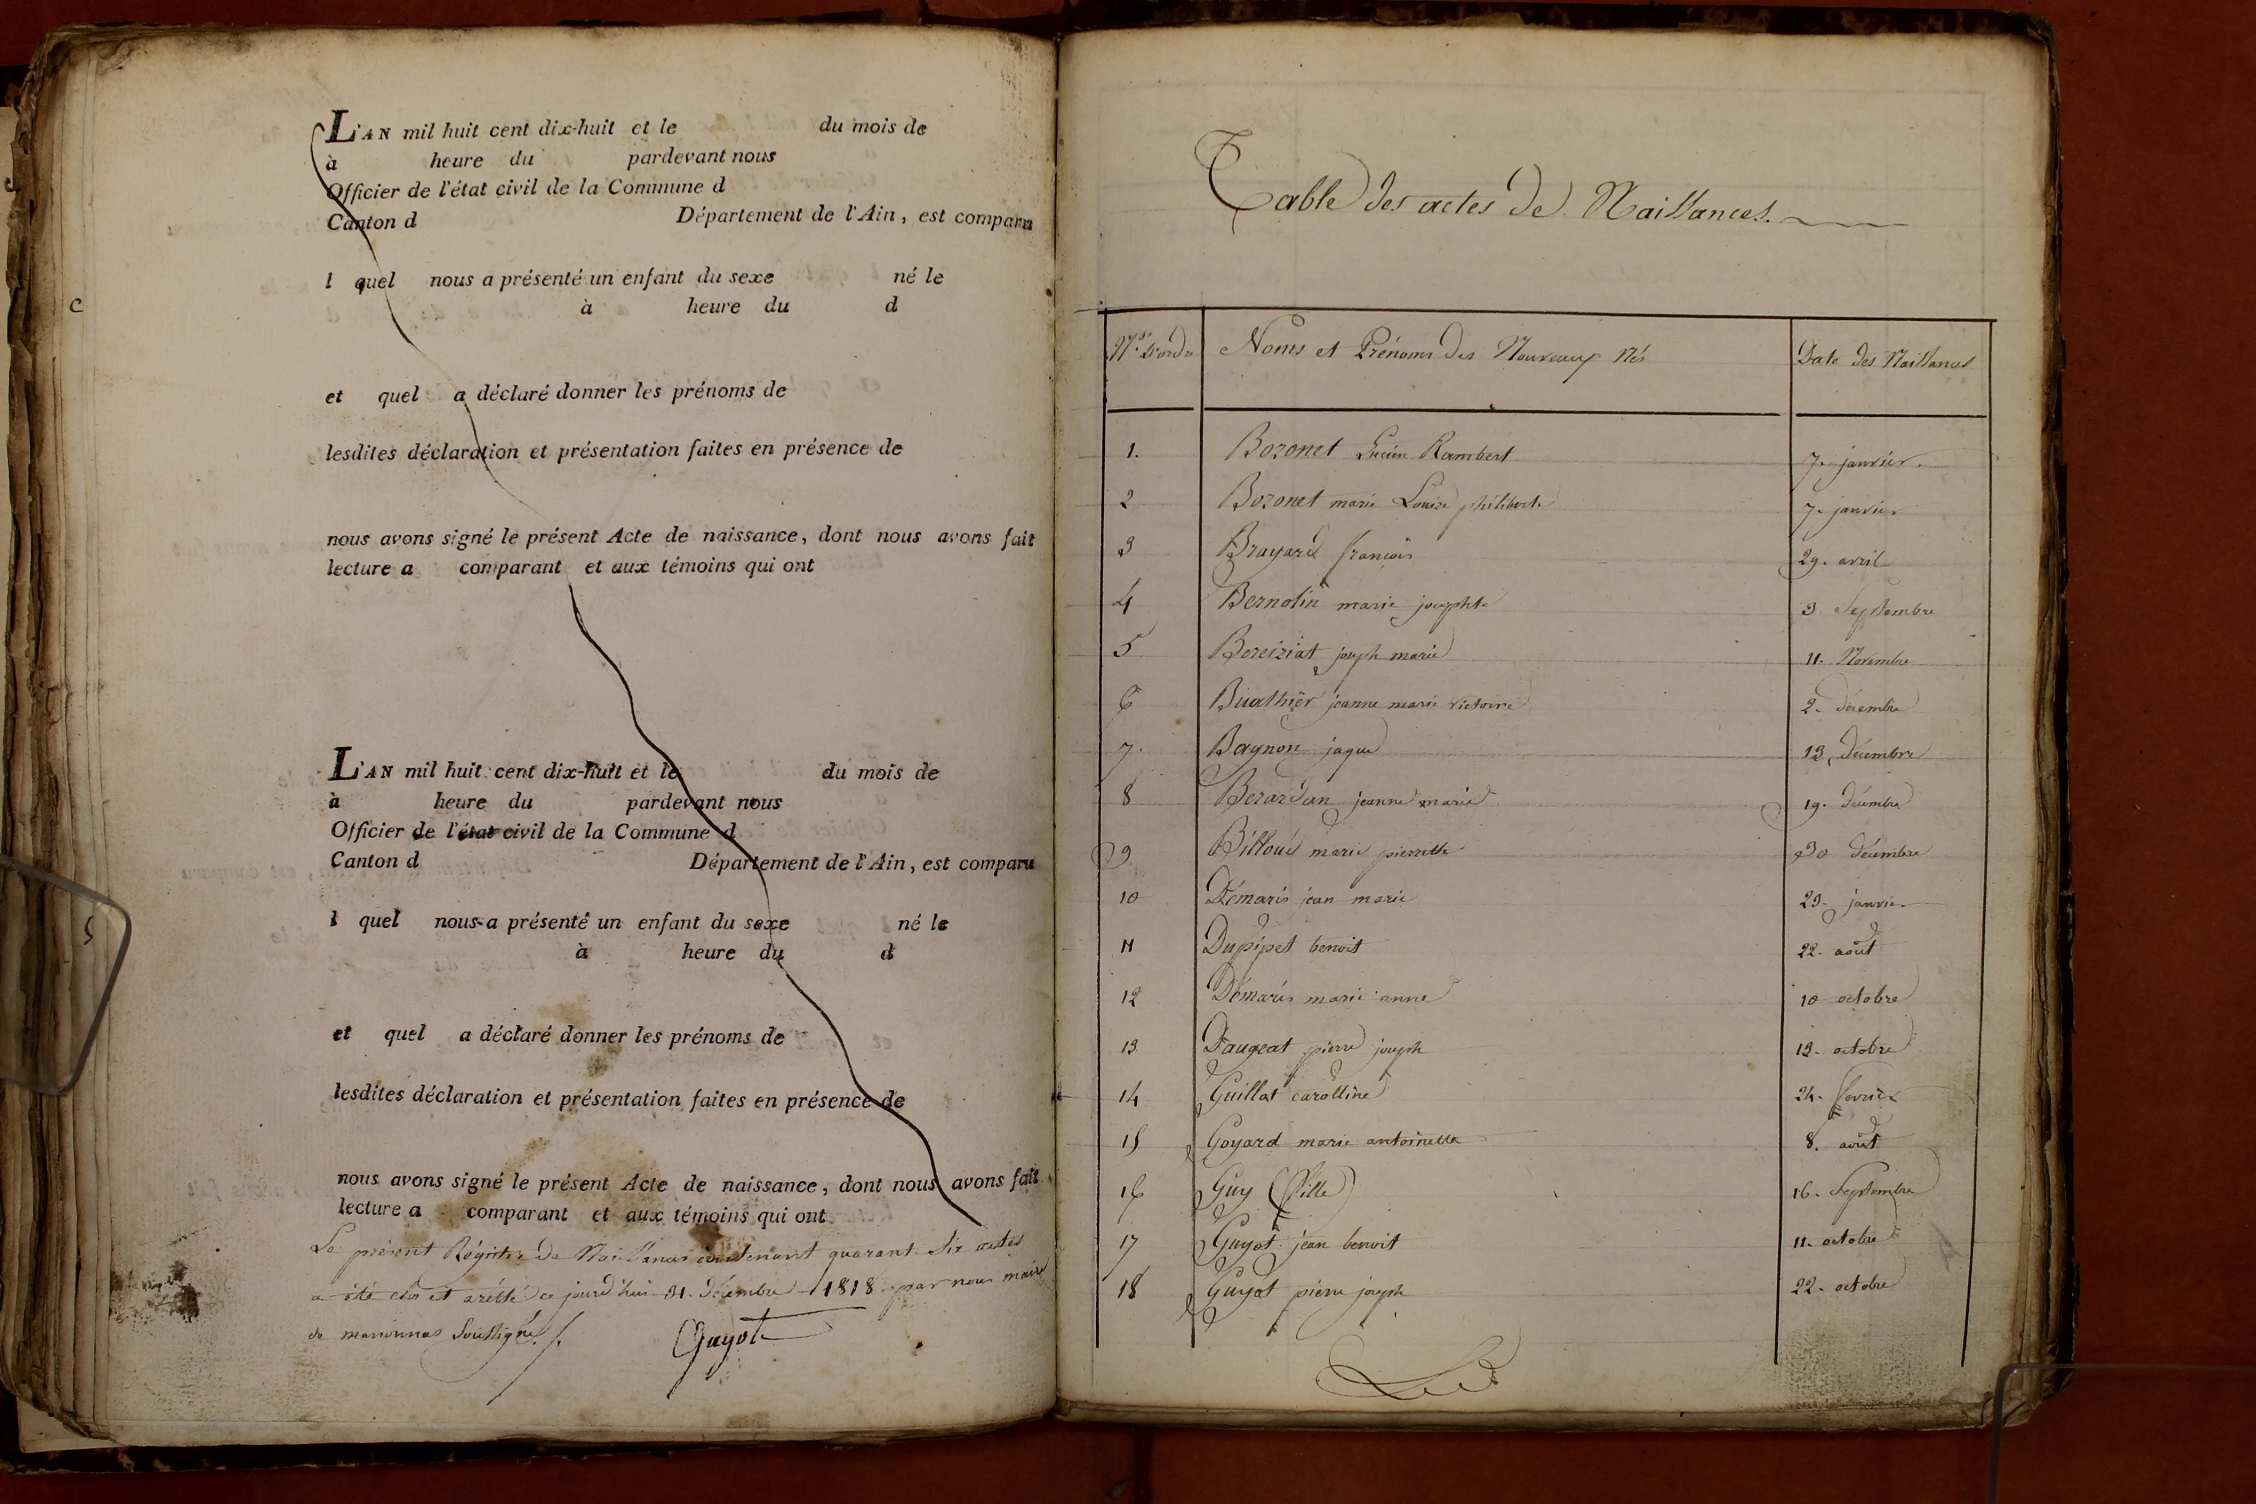 L'AN mil huit cent dix-huit et le du mois de
à heure du pardevant nous
Officier de l'état civil de la Commune d
Canton d Département de l'Ain, est comparu
l quel nous a présenté un enfant du sexe né le
à heure du d
et quel a déclaré donner les prénoms de
lesdites déclaration et présentation faites en présence de
nous avons signé le présent Acte de naissance, dont nous avons fait
lecture a comparant et aux témoins qui ont
L'AN mil huit cent dix-huit et le du mois de
à heure du pardevant nous
Officier de l'état civil de la Commune d
Canton d Département de l'Ain, est comparu
l quel nous a présenté un enfant du sexe né le
à heure du d
et quel a déclaré donner les prénoms de
lesdites déclaration et présentation faites en présence de
nous avons signé le présent Acte de naissance, dont nous avons fait
lecture a comparant et aux témoins qui ont
Le présent Régistre de Naissances contenant quarant six actes
a été clos et arêtté ce jourd'hui 31. décembre 1818 par nous maire
de marsonnas soussigné
Guyot
Table des actes de Naissances.
Nos. d'ordre Noms et Prénoms des Nouveaux Nés Date des Naissances
1. Bozonet Rambert 7. janvier.
2 Bozonet marie Louise philiberte 7. janvier
3 Brayard françois 29. avril
4 Bernolin marie josephte 3 Septembre
5 Bereiziat joseph marie 11. Novembre
6 Buathier jeanne marie victoire 2. décembre
7. Bagnon jaque 13, décembre
8 Berardan jeanne marie 19. décembre
9 Billoud marie pierrette 30 décembre
10 Démaris jean marie 29. janvier
11 Dupipet benoit 22. août
12 Démaris marie anne 10 octobre
13 Daugeat pierre joseph 13. octobre
14 Guillot carolline 24. fevrier
15 Goyard marie antoinette 8. août
16 Guy (fille) 16. Septembre
17 Guyot jean benoit 11. octobre
18 Guyot pierre joseph 22. octobre